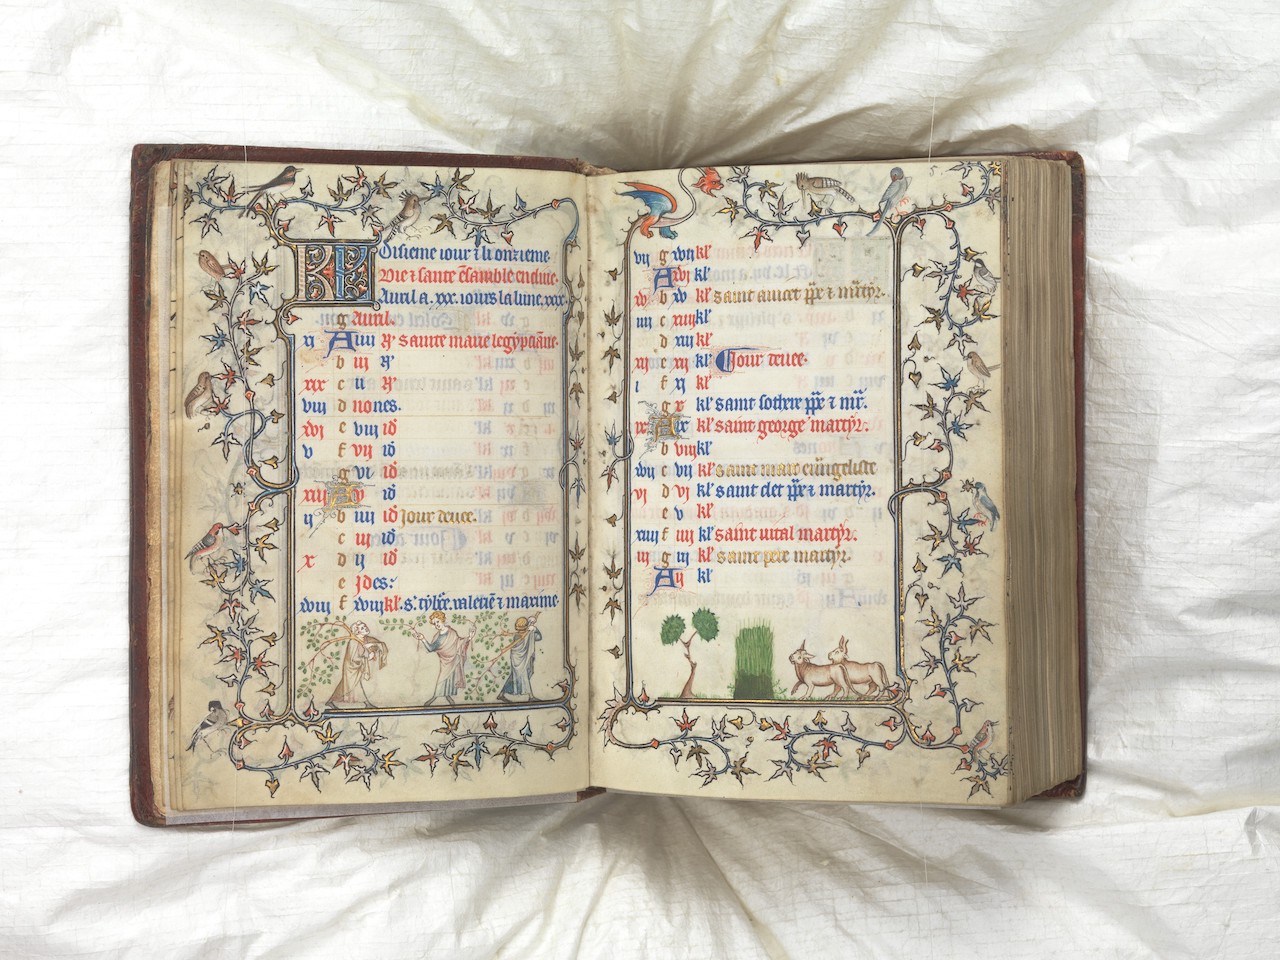 KL Disieme iour ⁊ li onzieme
Vie ⁊ sante ẽsamble en diue.
Auril a .xxx. iours la lune .xxix.
g Auril.
xi A iiii N̊ sainte marie legypciãne.
b iii N̊
xix c ii N̊
viii d nones.
xvi e viii id̾
v f vii id̾
g vi id̾
xiii A v id̾
ii b iiii id̾ iour deuee.
c iii id̾
x d ii id̾
e Ides.
xviii f xviii kl̾. s. tyb̾ce. valeriẽ ⁊ maxime
vii g xvii kl̾
A xvi kl̾
xv b xv kl̾ saint anicet pp̃e ⁊ mr̃tyr.
iiii c xiiii kl̾
d xiii kl̾
xii e xii kl̾ Iour deuee.
i f xi kl̾
g x kl̾ saint sothere pp̃e ⁊ mr̃.
ix A ix kl̾ saint george martyr.
b viii kl̾
xvii c vii kl̾ saint marc euũgeliste
vi d vi kl̾ saint clet pp̃e ⁊ martyr.
e v kl̾
xiiii f iiii kl̾ saint uital martyr.
iii g iii kl̾ saint pere martyr.
A ii kl̾